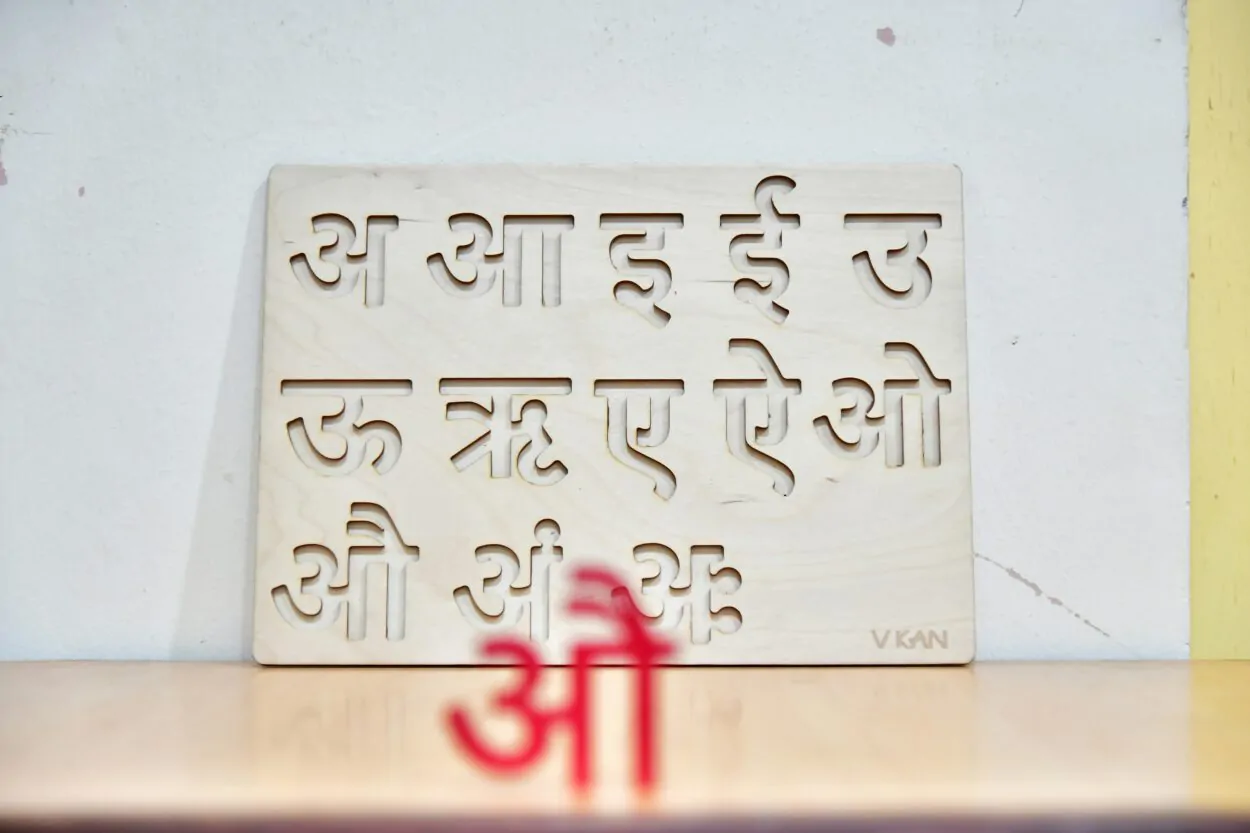 अ आ इ ई उ
ऊ ऋ ए ऐ ओ
औ अं अः
V KAN
औ